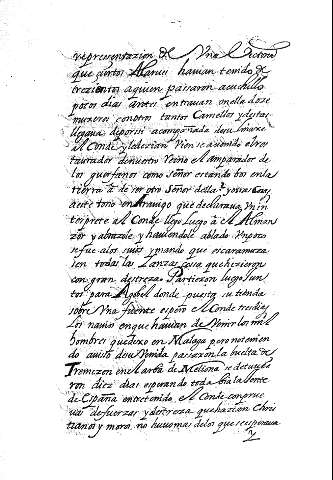 representazion de Una Victoria
que ciertos Alarves havian tenido de
trezientos a quien passaron a cuchillo
pocos dias antes entravan en ella doze
mugeres con otros tantos Camellos y destas
llegava de por si acompañada de su linere
al Conde y le dezian Vien seas venido el res
taurador de nuestro Reino el amparador de
los guerfanos como señor estando bos en la
tierra de ser otro Señor della y otras Can
en Aravigo que declarava Un in
terprete al Conde llego luego a el Alman
zor y abrazole y haviendole ablado Un poco
se fue a los suios y mando que escaramuza
sen todas las Lanzas cosa que hizieron
con gran destreza Partieron luego jun
tos para Agobel donde puesta su tienda
sobre Una fuente espero el Conde tres dias
los navios en que havian de Venir los mil
hombres que dexo en Malaga pero no tenien
do aviso de su Venida passaron la buelta de
Tremezen en el arba de Meliona se detuvie
ron diez dias esperando toda bia la gente
de España entretenido el Conde con prue
vas de fuerzas y destreza que hazian Chris
tianos y moros, no huvo mas de los que se esperava
y